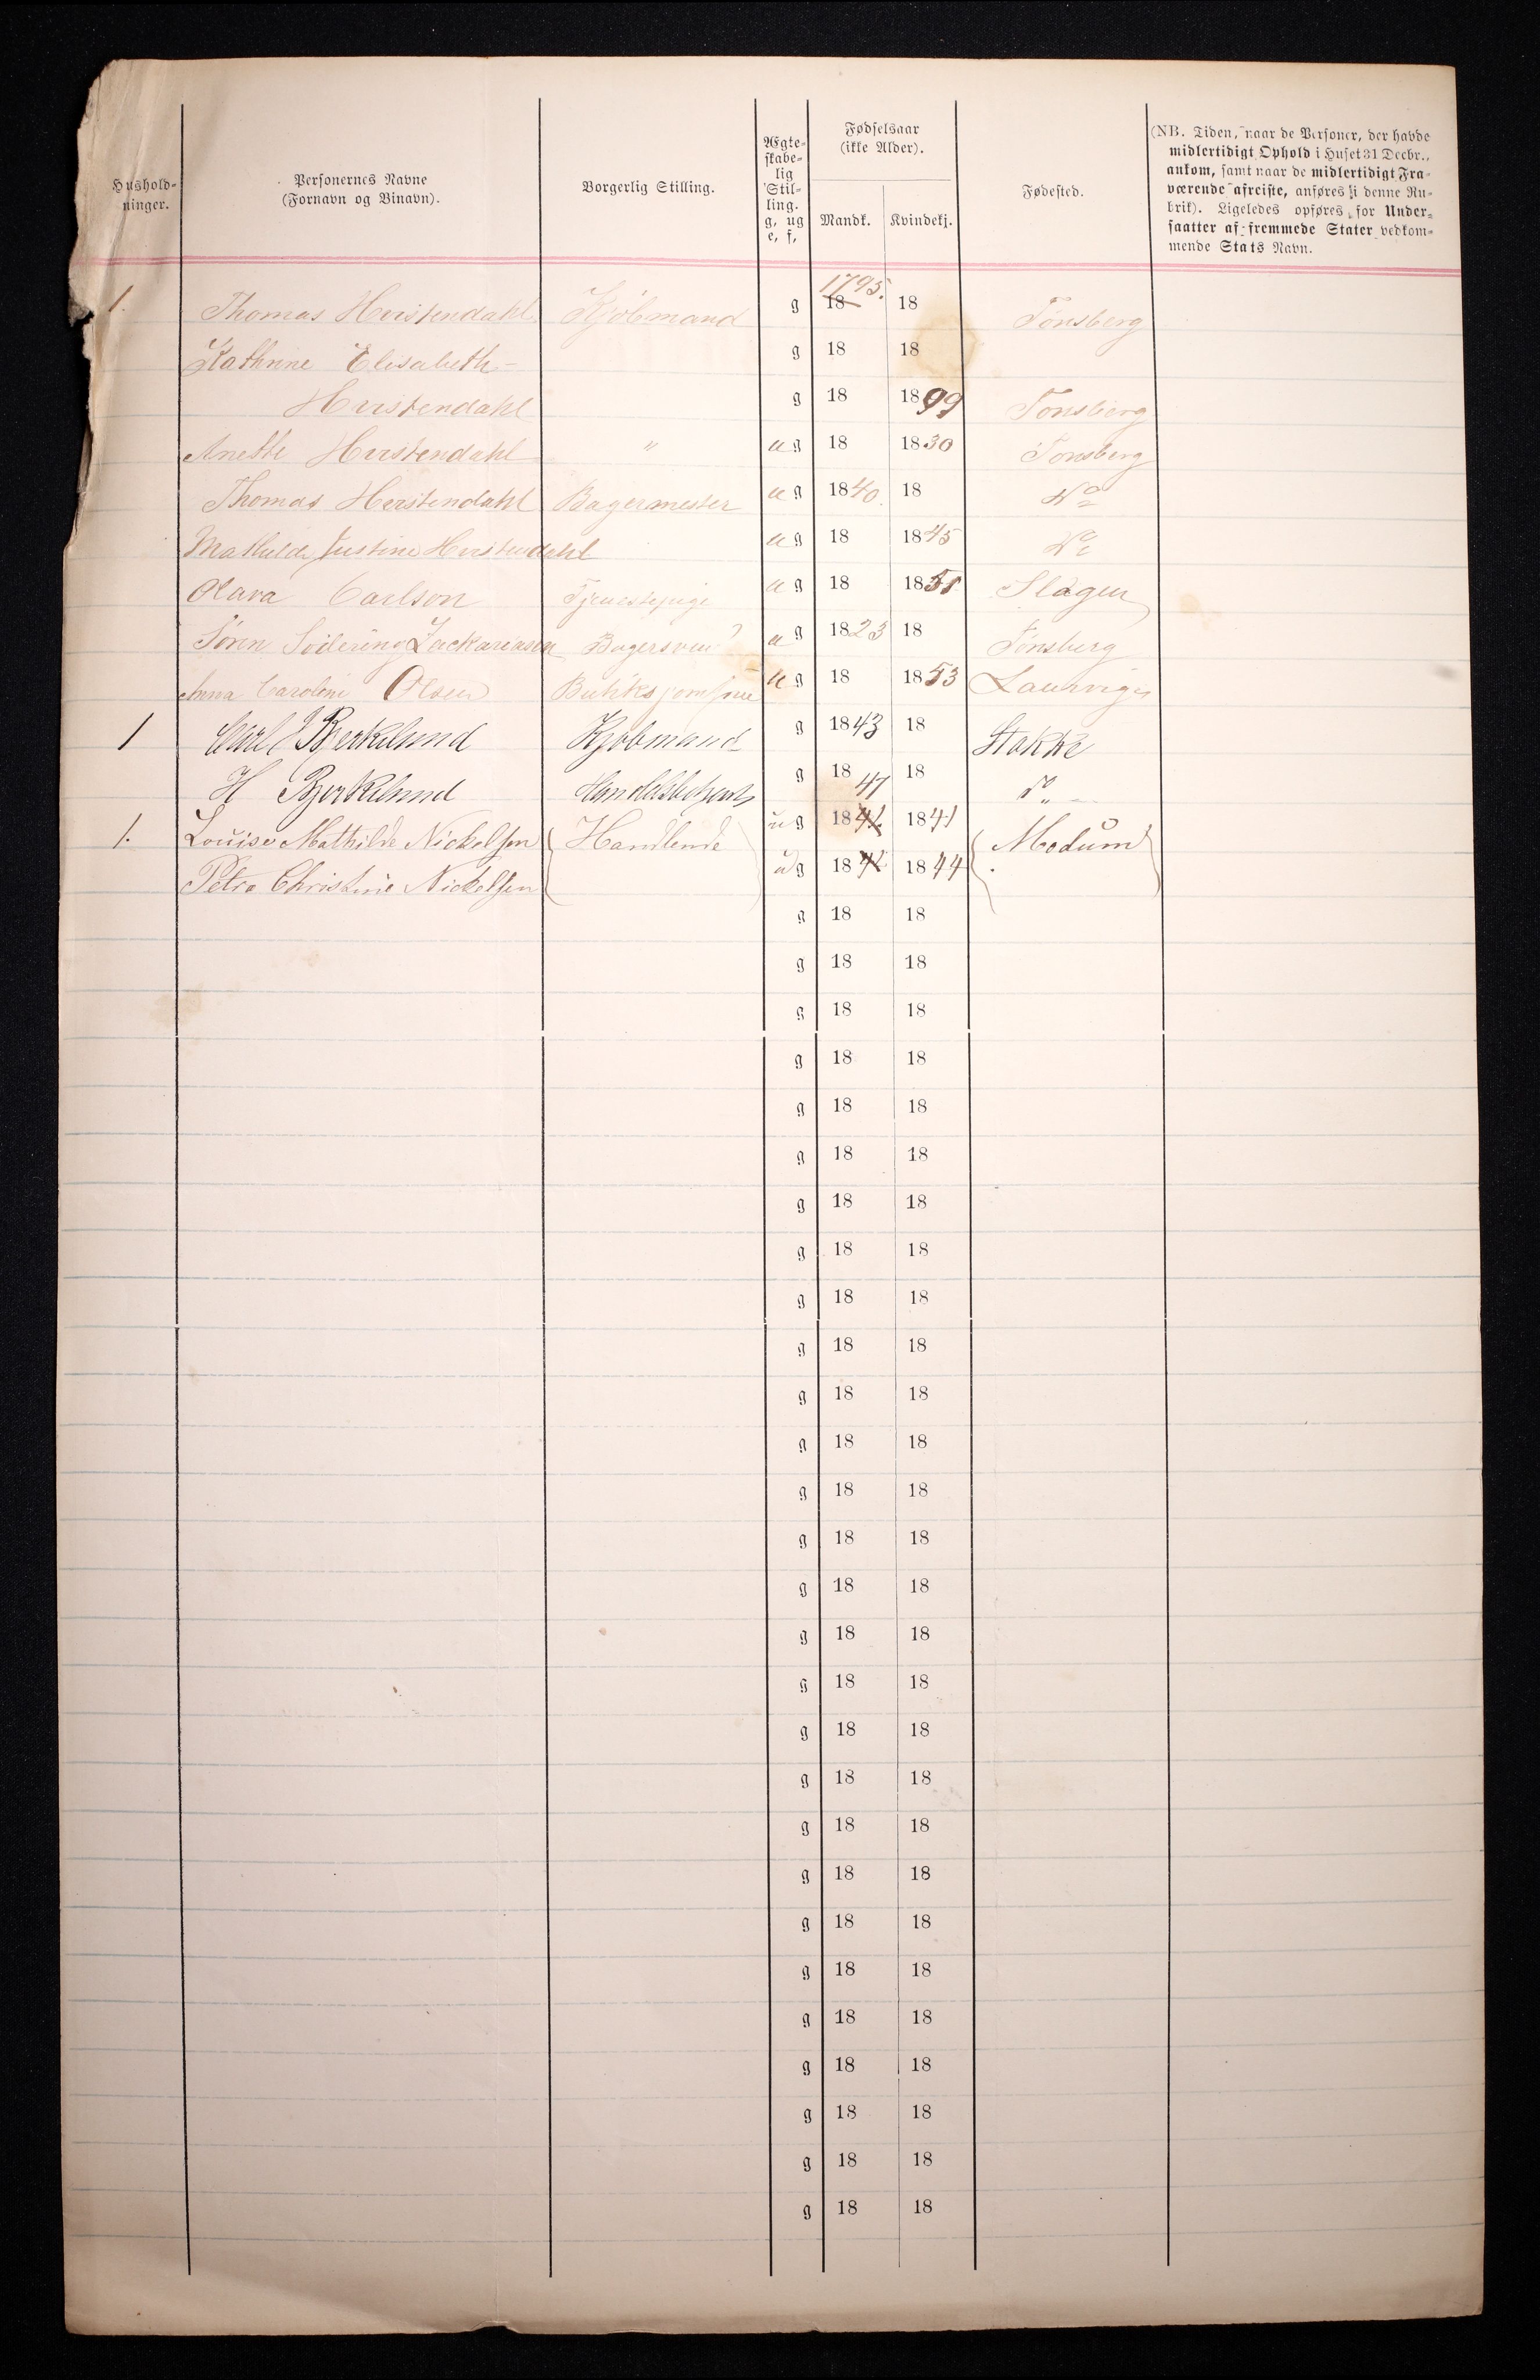 Hushold-
ninger.
Personernes Navne
(Fornavn og Binavn).
Borgerlig Stilling.
Ægte-
skabe-
lig
Stil-
ling.
g, ug
e, f,
Fødselsaar
(ikke Alder).
Mandk.
Kvindekj.
Fødested.
(NB. Tiden, naar de Personer, der havde
midlertidigt Ophold i Huset 31 Decbr.,
ankom, samt naar de midlertidigt Fra-
værende afreiste, anføres i denne Ru-
brik). Ligeledes opføres for Under-
saatter af fremmede Stater vedkom-
mende Stats Navn.
1. Thomas Herstendahl Kjöbmand g 1795. 18 18 Tönsberg
Kathrine Elisabeth- g 18 18
Herstendahl g 18 1899 Tönsberg
Anette Herstendahl " ug 18 1830 Tönsberg
Thomas Herstendahl Bagermester ug 1840. 18 Do
Mathilde Justine Herstendahl ug 18 1845 Do
Olava Carlson Tjenestepige ug 18 1851 Slagen
Sören Zackariasen Bagersvend ug 1823 18 Tönsberg
Anna Caroline Olsen Butiksjomfrue ug 18 1853 Laurvigen
1 Carl J Bjerkelund Kjøbmand g 1843 18 Stokke
H Bjerkelund Handelsbetjent g 1847 18 do
1. Louise Mathilde Nickelsen Handlende ug 1841 1841 Modum
Petra Christine Nickelsen ug 184 1844
g 18 18
g 18 18
g 18 18
g 18 18
g 18 18
g 18 18
g 18 18
g 18 18
g 18 18
g 18 18
g 18 18
g 18 18
g 18 18
g 18 18
g 18 18
g 18 18
g 18 18
g 18 18
g 18 18
g 18 18
g 18 18
g 18 18
g 18 18
g 18 18
g 18 18
g 18 18
g 18 18
g 18 18